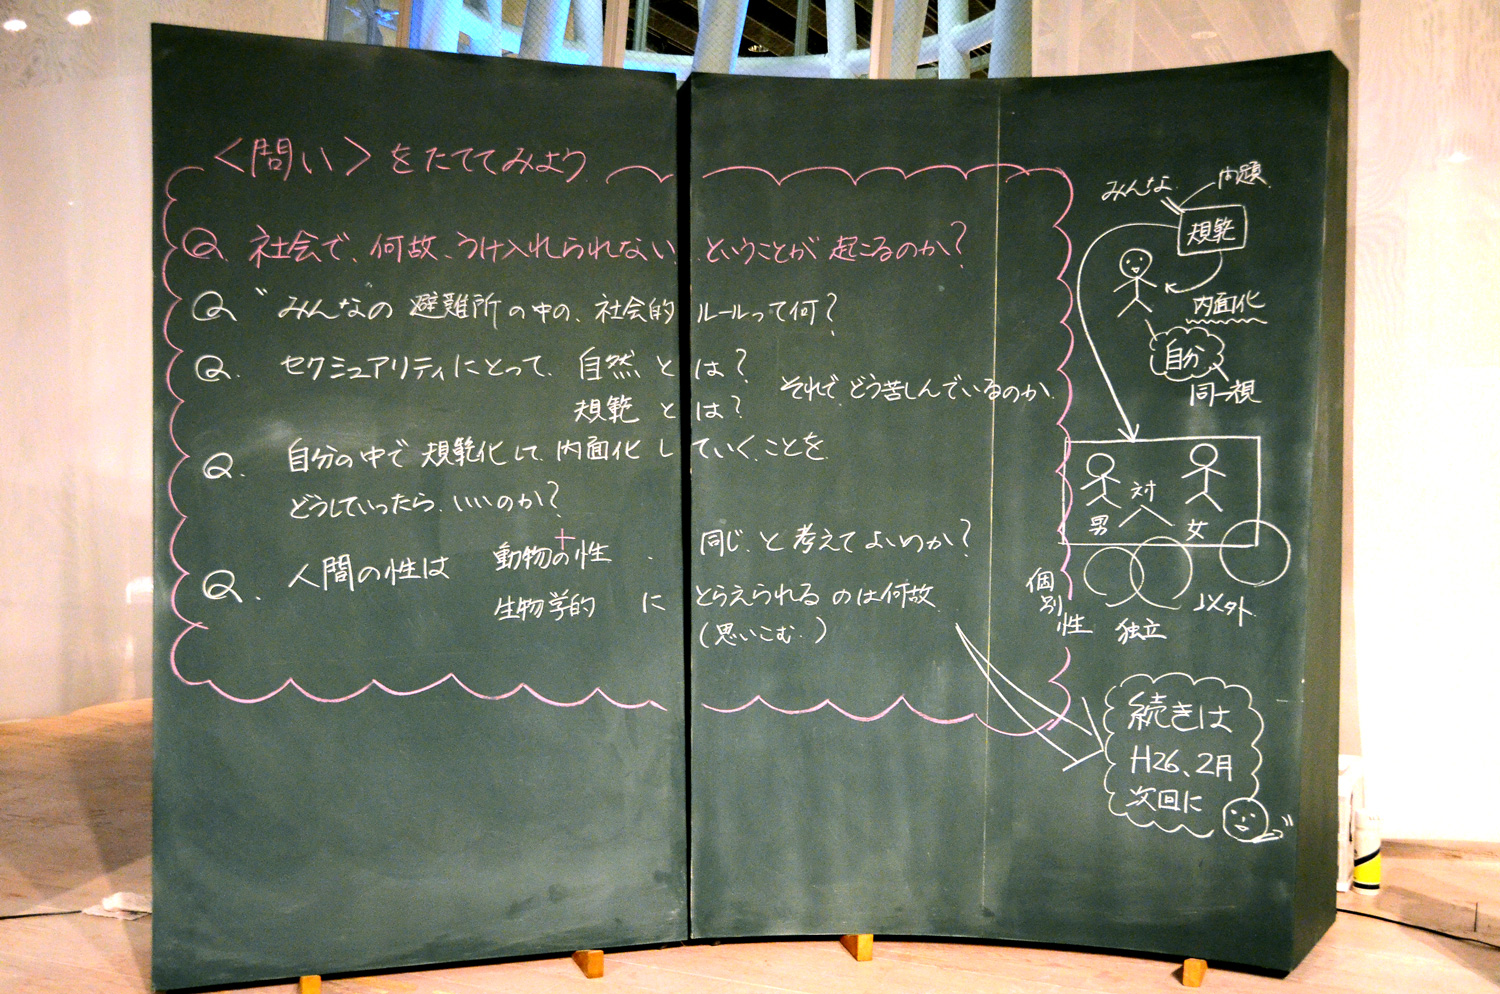 <問い>をたててみよう
Q. 社会で、何故、うけ入れられない ということが 起こるのか?
Q “みんな”の 避難所の中の、社会的 ルールって何?
Q. セクシュアリティにとって、自然 とは?
規範 とは?
それで、どう苦しんでいるのか
Q. 自分の中で 規範化して、内面化 していくことを
どうしていったら いいのか?
Q. 人間の性は 動物の性 同じ と考えてよいのか?
生物学的 に とらえられるのは何故
(思いこむ)
みんな 問題
規範
内面化
自分
同一視
男 対 女
個別性
独立
以外
続きは
H26、2月
次回に